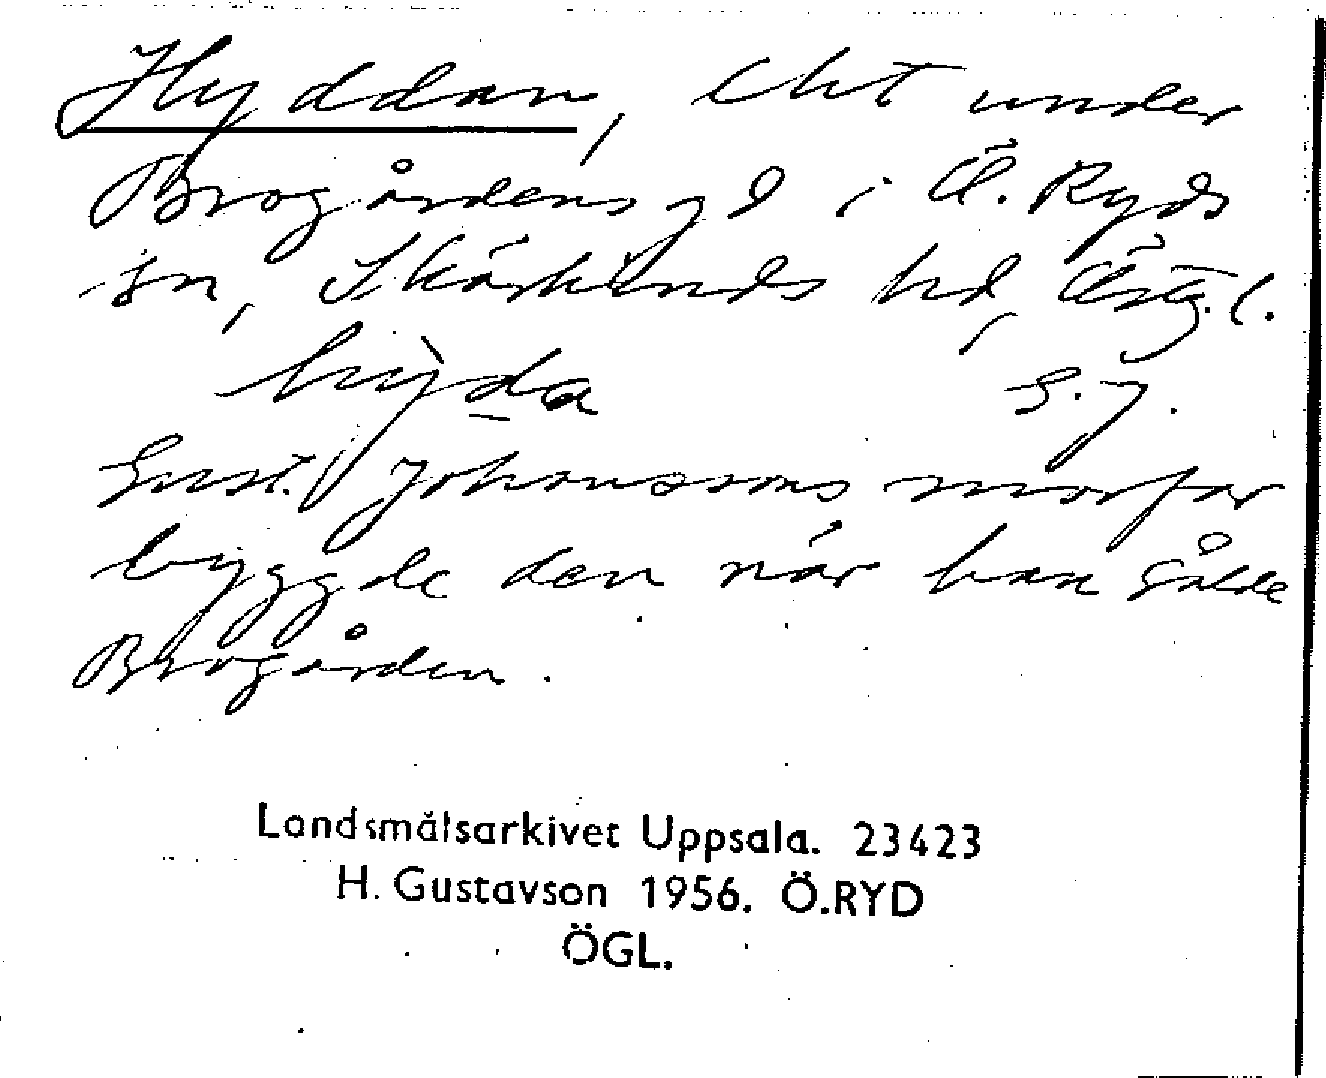 Hyddan, lht under
Brogårdens gd i Ö. Ryds
sn, Skärkinds hd, Östg. l.
hỳda G. J.
Gust. Johanssons morfar
byggde den när han sålde
Brogården.
Landsmålsarkivet Uppsala. 23423
H. Gustavson 1956. Ö.RYD
ÖGL.